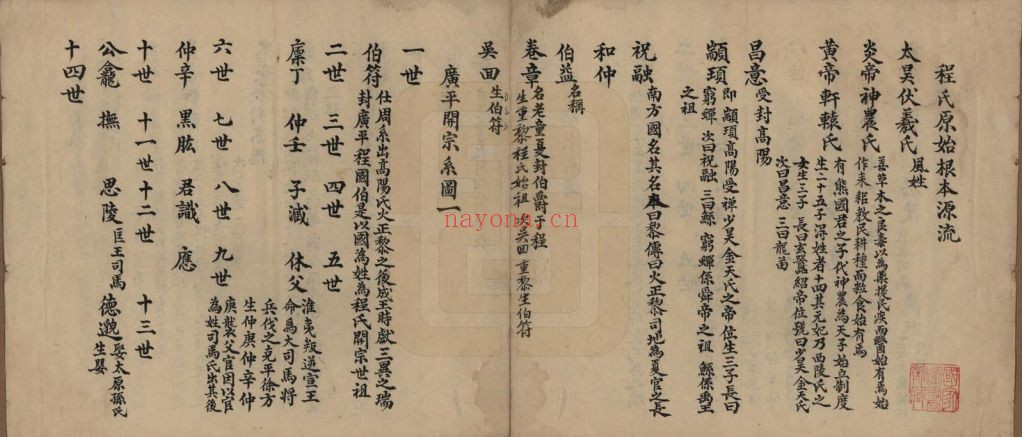 程氏原始根本源流
太昊伏羲氏 風姓
炎帝神農氏 嘗草木之良毒以為藥提民疾而醫始有焉始
作耒耜教民耕種而粒食始有焉
黃帝軒轅氏 有熊國君之子代神農為天子始立制度
生二十五子淂姓者十四其元妃乃西陵氏之
女生三子 長曰玄囂紹帝位號曰少昊金天氏
次曰昌意 三曰龍苗
昌意 受封高陽
顓頊 即顓頊高陽受禪少昊金天氏之帝位生三子長曰
窮蟬 次曰祝融 三曰鯀 窮蟬係舜帝之祖 鯀係禹王
之祖
祝融 南方國名其名本曰黎傳曰火正黎司地為夏官之長
和仲
伯益 名稱
卷章 名老童夏封伯爵于程
生重黎程氏始祖 次吳回 重黎生伯符
吳回 生伯符
廣平開宗系圖一
一世
伯符 仕周系出高陽氏火正黎之後成王時獻三異之瑞
封廣平程國伯是以國為姓為程氏開宗世祖
二世 三世 四世 五世
廩丁 仲壬 子滅 休父 淮夷叛逆宣王
命為大司馬將
兵伐之克平徐方
生仲庚仲辛仲
庚襲父官因以官
為姓司馬氏出其後
六世 七世 八世 九世
仲辛 黑肱 君識 應
十世 十一世 十二世 十三世
公龕 撫 思陵 匡王司馬 德邈 娶太原孫氏
生嬰
十四世
nayona.cn